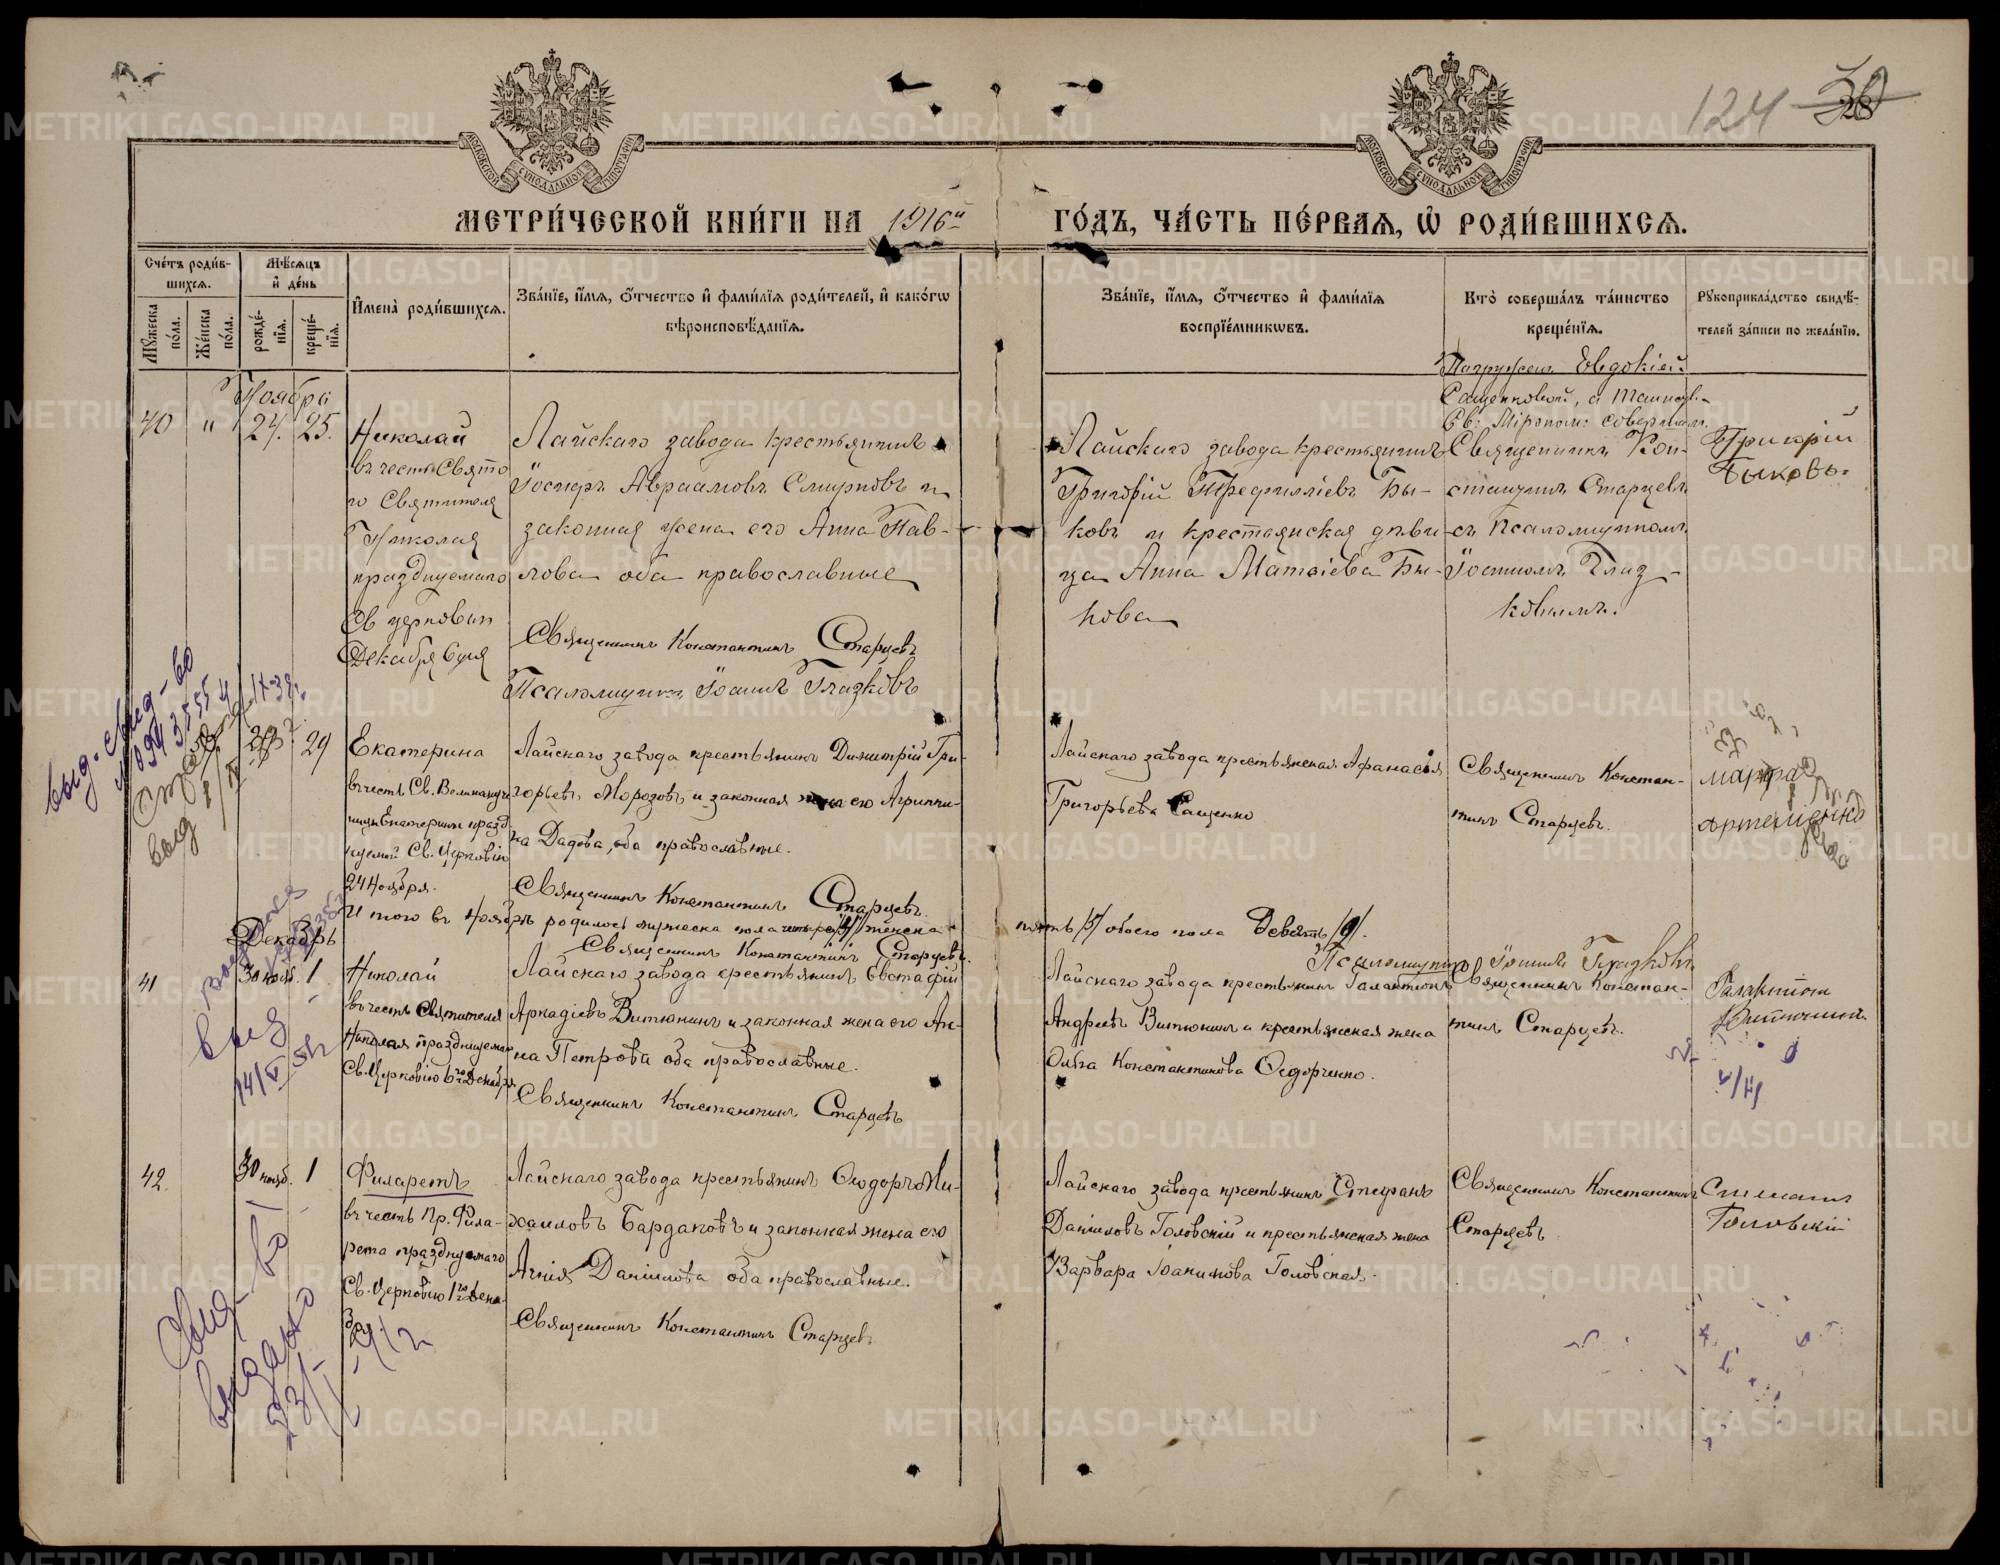 124 30 28
МОСКОВСКОЙ СѴНОДАЛЬНОЙ ТИПОГРАФІИ
МОСКОВСКОЙ СѴНОДАЛЬНОЙ ТИПОГРАФІИ
МЕТРИ́ЧЕСКОЙ КНИ́ГИ НА 1916й ГО́ДЪ, ЧА́СТЬ ПЕ́РВАЯ, Ѡ҆ РОДИ́ВШИХСЯ.
Сче́тъ роди́вшихся.
Мꙋ́жеска по́ла.
Же́нска по́ла.
Мѣ́сяцъ и҆ де́нь
рожде́нїя.
креще́нїя.
И҆мена̀ роди́вшихся.
Зва́нїе, и҆́мя, ѻ҆́тчество и҆ фами́лїя роди́телей, и҆ како́гѡ
вѣроисповѣ́данїя.
Зва́нїе, и҆́мя, ѻ҆́тчество и҆ фами́лїя
воспрїе́мникѡвъ.
Кто̀ соверша́лъ та́инство
креще́нїя.
Рꙋкоприкла́дство свидѣ́-
телей за́писи по жела́нїю.
Ноября
40 " 24. 25.
Николай
въ честь Свято
го Святителя
Николая
празднуемаго
Св церковью
Декабря 6 дня
Лайскаго завода крестьянинъ
Іосифъ Авраамовъ Смирновъ и
законная жена его Анна Пав-
лова оба православные
Священникъ Константинъ Старцевъ
Псаломщикъ Іоаннъ Глазковъ
Лайскаго завода крестьянинъ
Григорій Трефиліевъ Бы-
ковъ и крестьянская дѣви-
ца Анна Матвіева Бы-
кова
Погружен Евдокіей
Сащенковой, а таинст.
Св: Мѵропом: совершил
Священникъ Кон-
стантинъ Старцевъ
съ Псаломщикомъ
Іоанномъ Глаз-
ковымъ.
Григорій
Быковъ.
29
Екатерина
въ честь Св. Великомуче
ницы Екатерины празд-
нуемой Св. Церковію
24 Ноября.
Лайскаго завода крестьянинъ Димитрій Гри-
горьевъ Морозовъ и законная жена его Агриппи-
на Дадова, оба православные.
Священникъ Константинъ Старцевъ.
Лайскаго завода крестьянская Афанасія
Григорьева Сащенко
Священникъ Констан-
тинъ Старцевъ.
марфа
Артеменко
Итого въ Ноябрѣ родилось мужеска пола четыре /4/ женска пять /5/ обоего пола девять /9/.
Священникъ Константинъ Старцевъ.
Псаломщикъ Іоаннъ Глазковъ
Декабрь
41 30 нояб. 1
Николай
въ честь Святителя
Николая празднуемаго
Св. Церковію 6го Декабря
Лайскаго завода крестьянинъ Евстафій
Аркадіевъ Витюнинъ и законная жена его Ан-
на Петрова оба православные.
Священникъ Константинъ Старцевъ
Лайскаго завода крестьянинъ Галактіонъ
Андреевъ Витюнинъ и крестьянская жена
Ольга Константинова Ѳедорченко.
Священникъ Констан-
тинъ Старцевъ.
Галактіон
Витюнинъ
42. 30 нояб. 1
Филаретъ
въ честь Пр. Фила-
рета празднуемаго
Св. Церковію 1го Дека-
бря.
Лайскаго завода крестьянинъ Ѳеодоръ Ми-
хаиловъ Бардаковъ и законная жена его
Агнія Даніилова оба православные.
Священникъ Константинъ Старцевъ
Лайскаго завода крестьянинъ Стефанъ
Даніиловъ Головскій и крестьянская жена
Варвара Іоакимова Головская.
Священникъ Константинъ
Старцевъ
Степанъ
Головскій
выд. свид-во
выд
14/V 58г
Свид-во
выдано
23/I-41г
METRIKI.GASO-URAL.RU